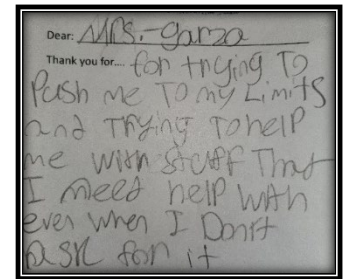 Dear: Mrs. Garza
Thank you for.... for trying To
Push me To my Limits
and Trying To help
me with stuff That
I need help with
even when I Don't
ask for it